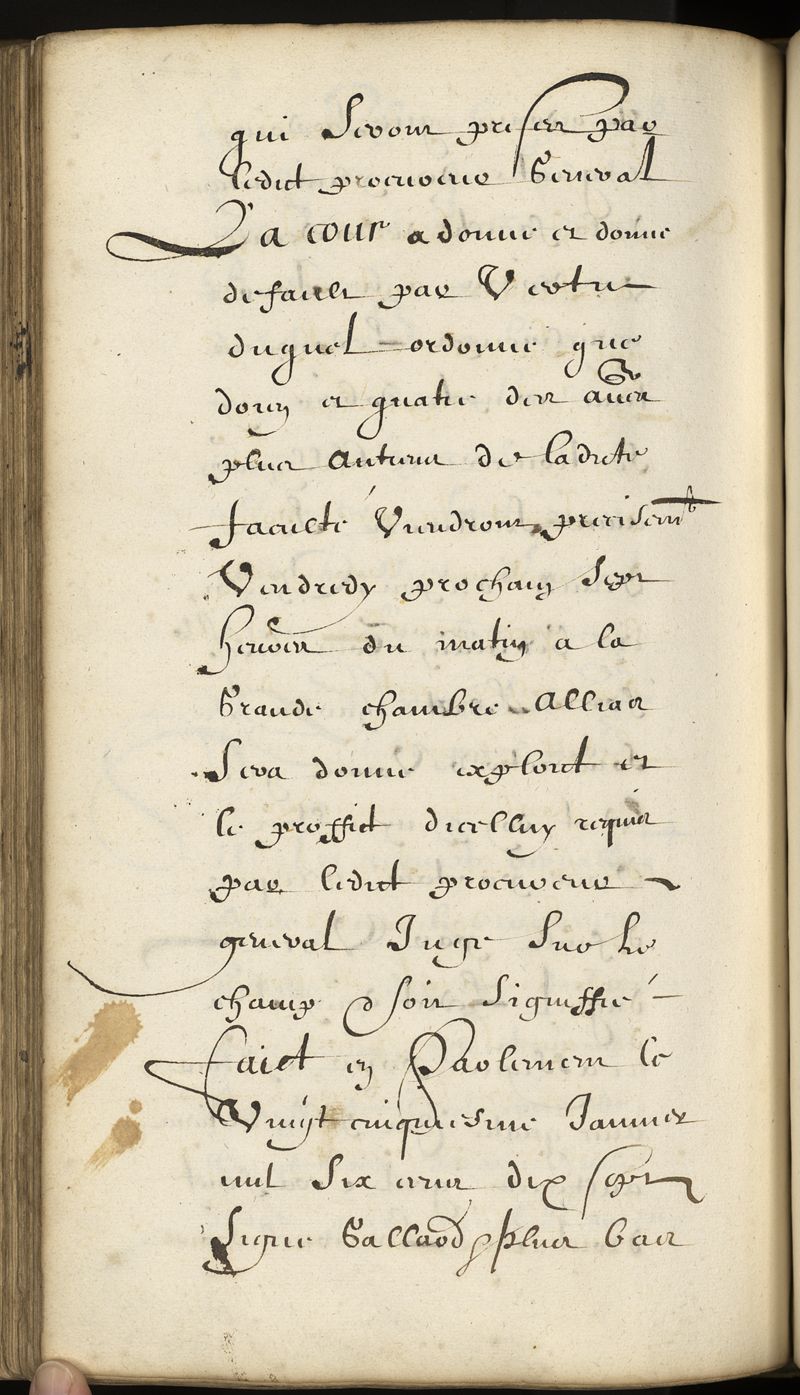 qui seront prises par
ledict procureur General
La cour a donne et donne
default par Vertu
duquel ordonne que
doien et quatre des
plus antiens de ladicte
faculté Viendront precisemt
Vendredy prochain Sept
heures du matin a la
Grande chambre Allias
Sera donne exploict et
le proffict dicelluy requis
par ledict procureur
general Juge sur le
champ & soit signiffié
faict en Parlement le
Vingt cinquiesme Janvier
mil six cens dix sept
Signe Gallard plus bas